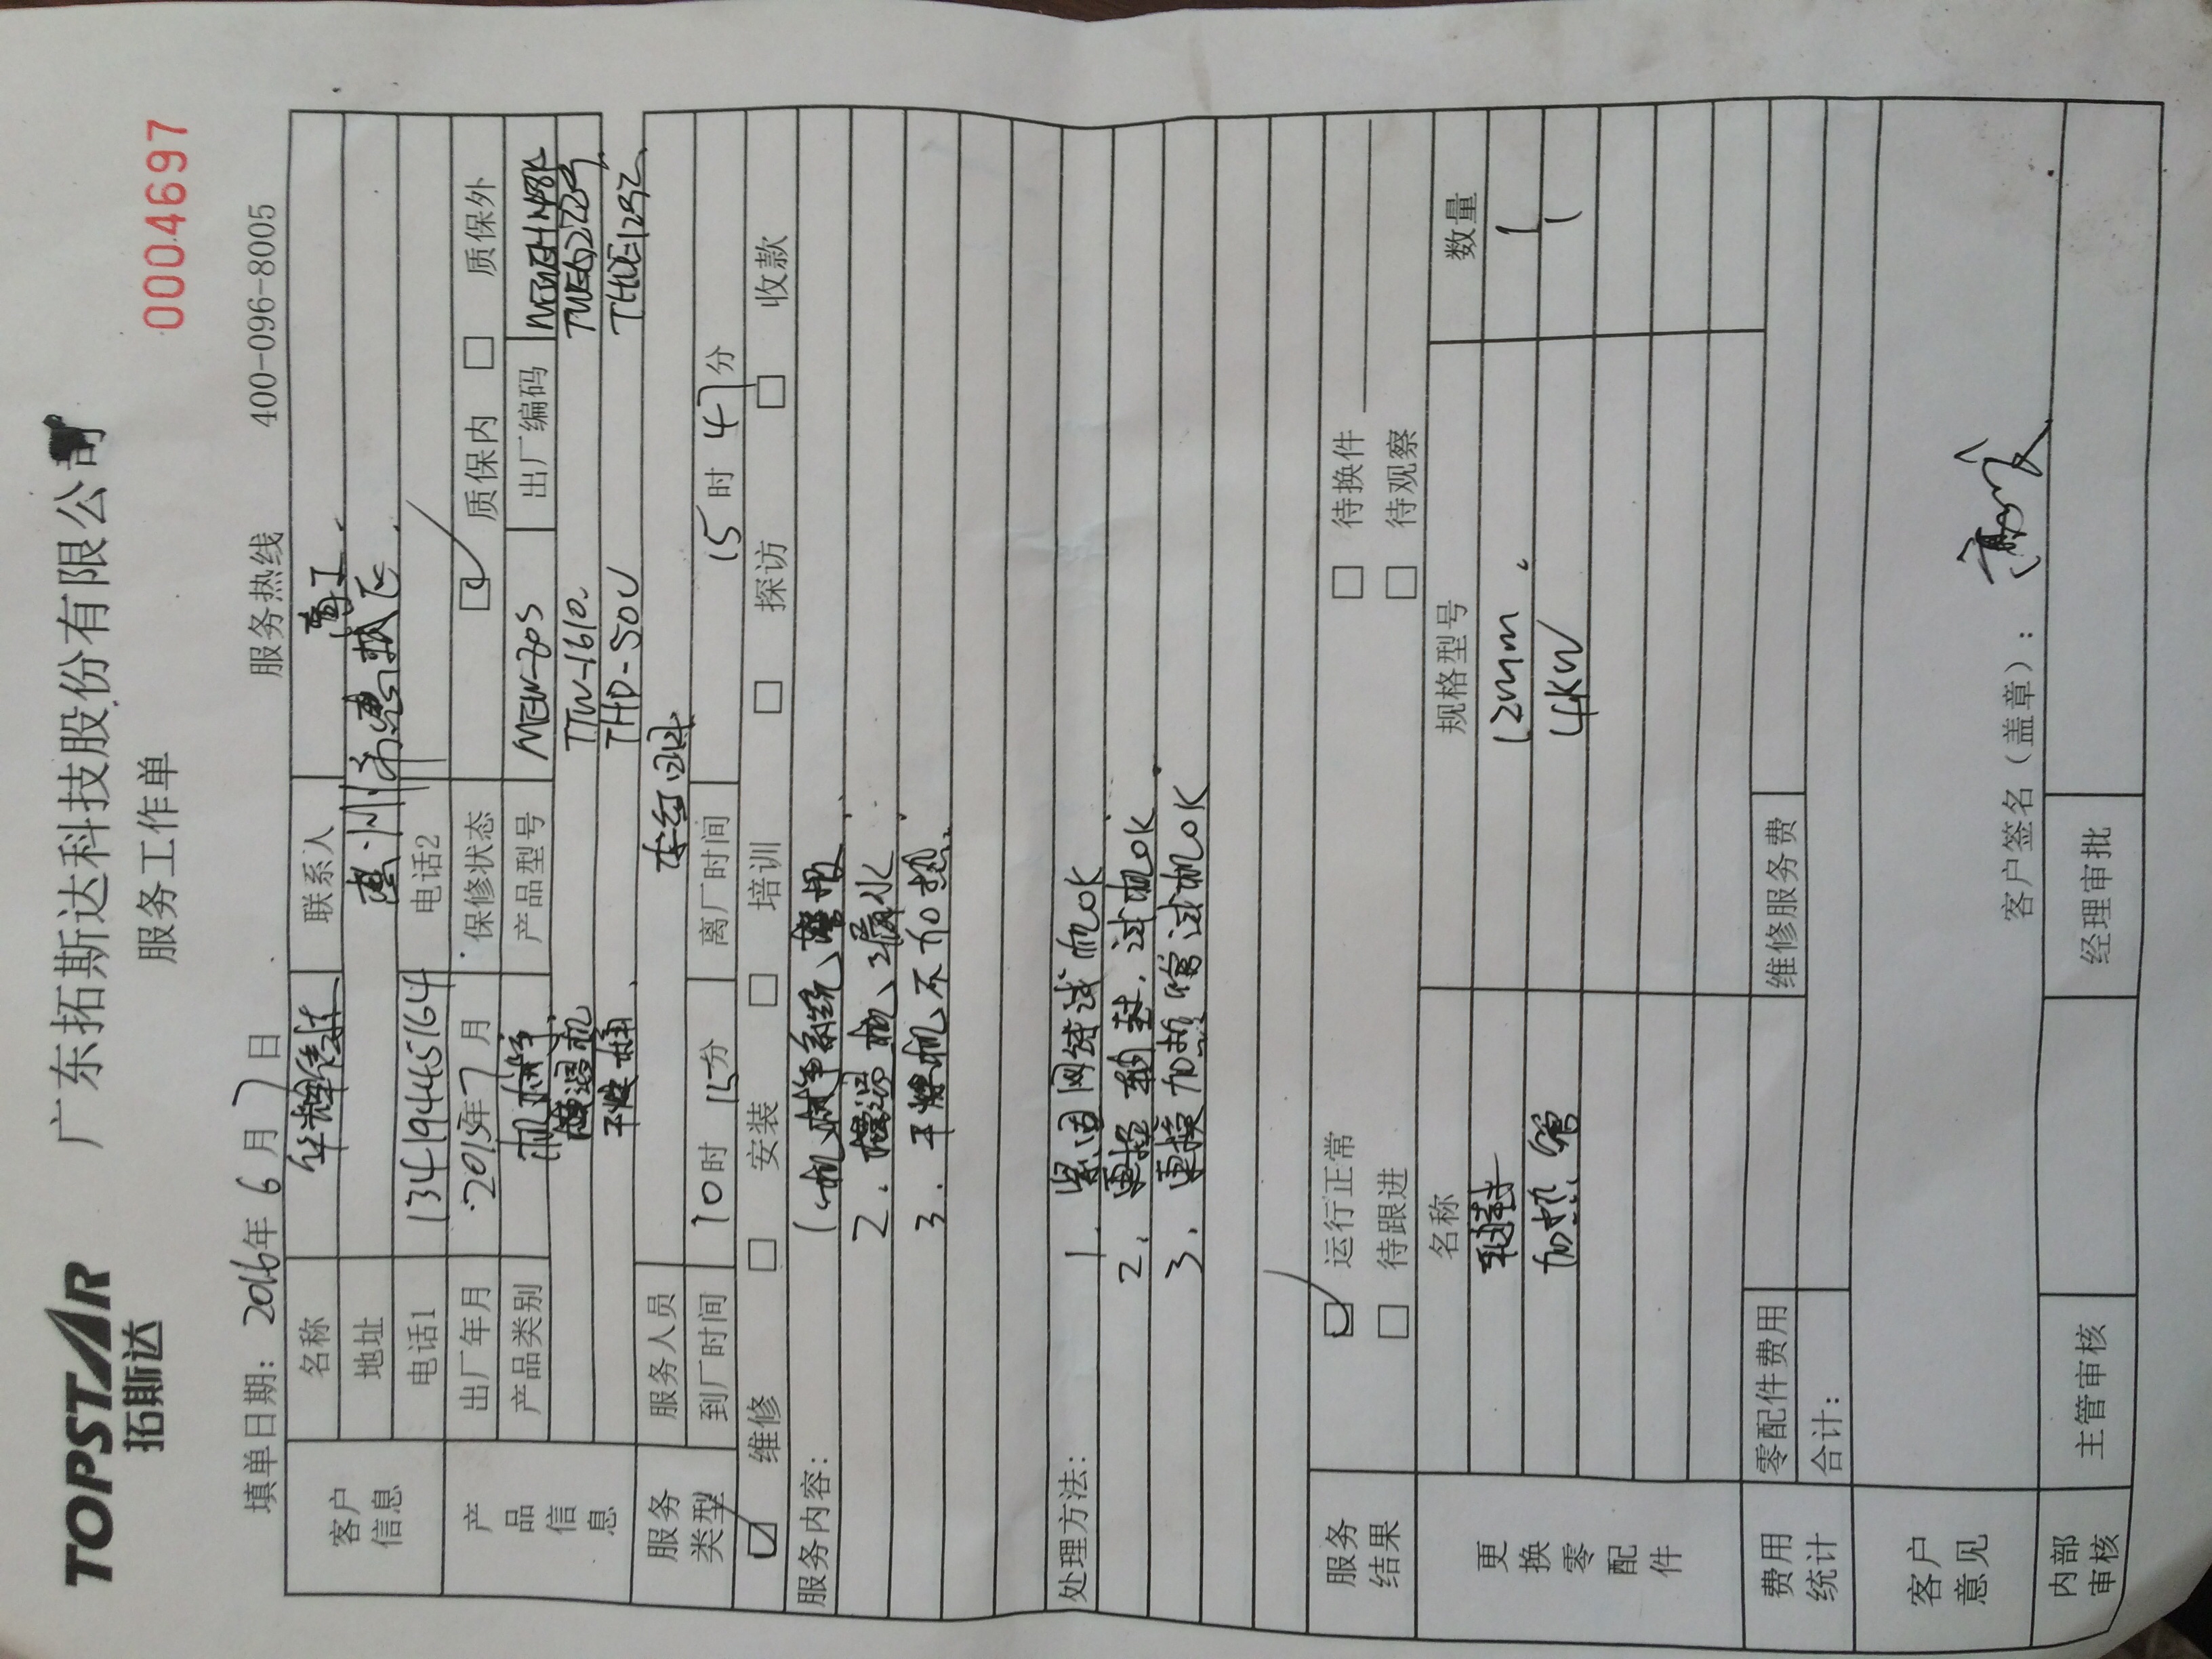 TOPSTAR
拓斯达
广东拓斯达科技股份有限公司
服务工作单
0004697
填单日期: 2016年 6 月 7 日
服务热线 400-096-8005
客户信息
名称
联系人 高工.
地址 惠州市惠城区.
电话1 13419445164 电话2
产品信息
出厂年月 2015年7月 保修状态 质保内 质保外
产品类别 机械手 产品型号 MEW-80S 出厂编码
除湿机 TTW-1610.
干燥桶. THD-50U THUE1292
服务类型
服务人员 李红
到厂时间 10时 15分 离厂时间 15时 47分
维修 安装 培训 探访 收款
服务内容: 1、机械手系统、警报,
2. 除湿机、漏水
3. 干燥机、不加热.
处理方法: 1. 紧固网线试机OK
2. 更换轴封.试机OK
3. 更换加热管试机OK
服务结果
运行正常 待换件
待跟进 待观察
更换零配件
名称 规格型号 数量
轴封 12mm. 1
加热管 4KW 1
费用统计
零配件费用 维修服务费
合计:
客户意见
客户签名（盖章）:
内部审核
主管审核 经理审批